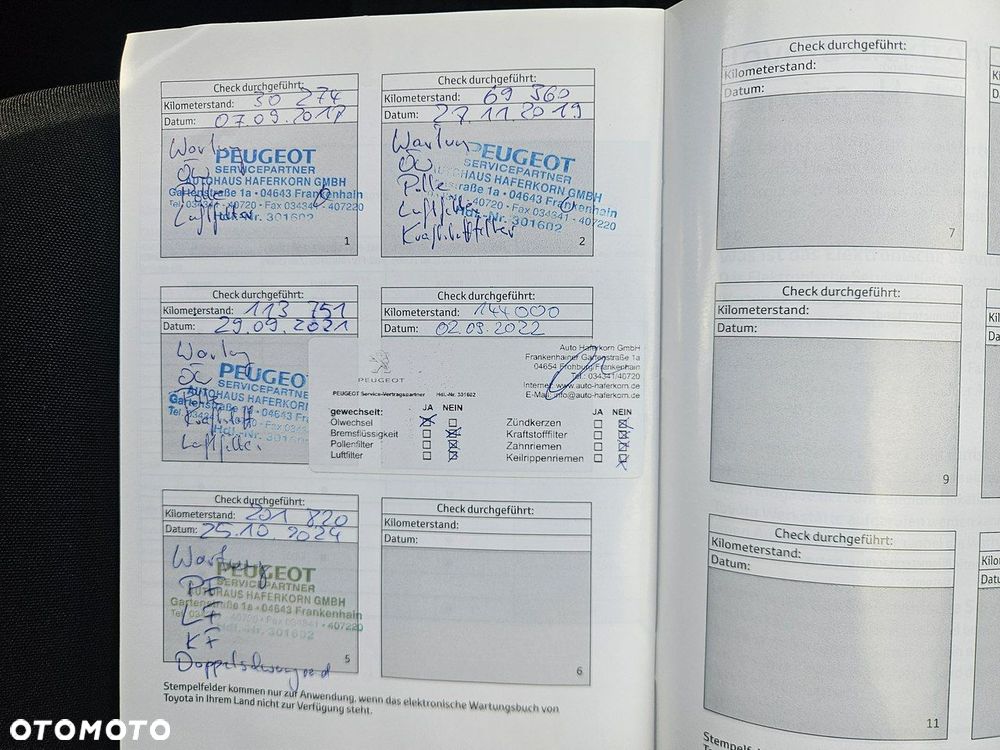 Check durchgeführt:
Kilometerstand: 30 274
Datum: 07.09.2017
Wartung
ÖW
PEUGEOT
SERVICEPARTNER
AUTOHAUS HAFERKORN GMBH
Gartenstraße 1a · 04643 Frankenhain
Luftfilter
Hdl.-Nr. 301602
1
Check durchgeführt:
Kilometerstand: 69 360
Datum: 27.11.2019
Wartung
ÖW
Polle
Luftfilter
Kraftstofffilter
PEUGEOT
SERVICEPARTNER
AUTOHAUS HAFERKORN GMBH
Gartenstraße 1a · 04643 Frankenhain
40720 · Fax 034341 · 407220
Hdl.-Nr. 301602
2
Check durchgeführt:
Kilometerstand: 113 751
Datum: 29.09.2021
Wartung
ÖW
Kraftstoff
Luftfilter
PEUGEO
SERVICEPARTNER
AUTOHAUS HAFERKORN
Gartenstraße 1a · 04643
Hdl.-Nr. 301
Check durchgeführt:
Kilometerstand: 144000
Datum: 02.09.2022
PEUGEOT
PEUGEOT Service-Vertragspartner Hdl.-Nr. 301602
Auto Haferkorn GmbH
Frankenhainer Gartenstraße 1a
04654 Frohburg Frankenhain
Tel.: 034341/40720
Internet: www.auto-haferkorn.de
E-Mail: info@auto-haferkorn.de
gewechselt: JA NEIN
Ölwechsel
Bremsflüssigkeit
Pollenfilter
Luftfilter
JA NEIN
Zündkerzen
Kraftstofffilter
Zahnriemen
Keilrippenriemen
Check durchgeführt:
Kilometerstand: 201 820
Datum: 25.10.2024
Wartung
PF
LF
KF
PEUGEOT
SERVICEPARTNER
AUTOHAUS HAFERKORN GMBH
Gartenstraße 1a · 04643 Frankenhain
40720 · Fax 034341 · 407220
Hdl.-Nr. 301602
5
Check durchgeführt:
Kilometerstand:
Datum:
6
Stempelfelder kommen nur zur Anwendung, wenn das elektronische Wartungsbuch von
Toyota in Ihrem Land nicht zur Verfügung steht.
Check durchgeführt:
Kilometerstand:
Datum:
7
Check durchgeführt:
Kilometerstand:
Datum:
9
Check durchgeführt:
Kilometerstand:
Datum:
11
OTOMOTO